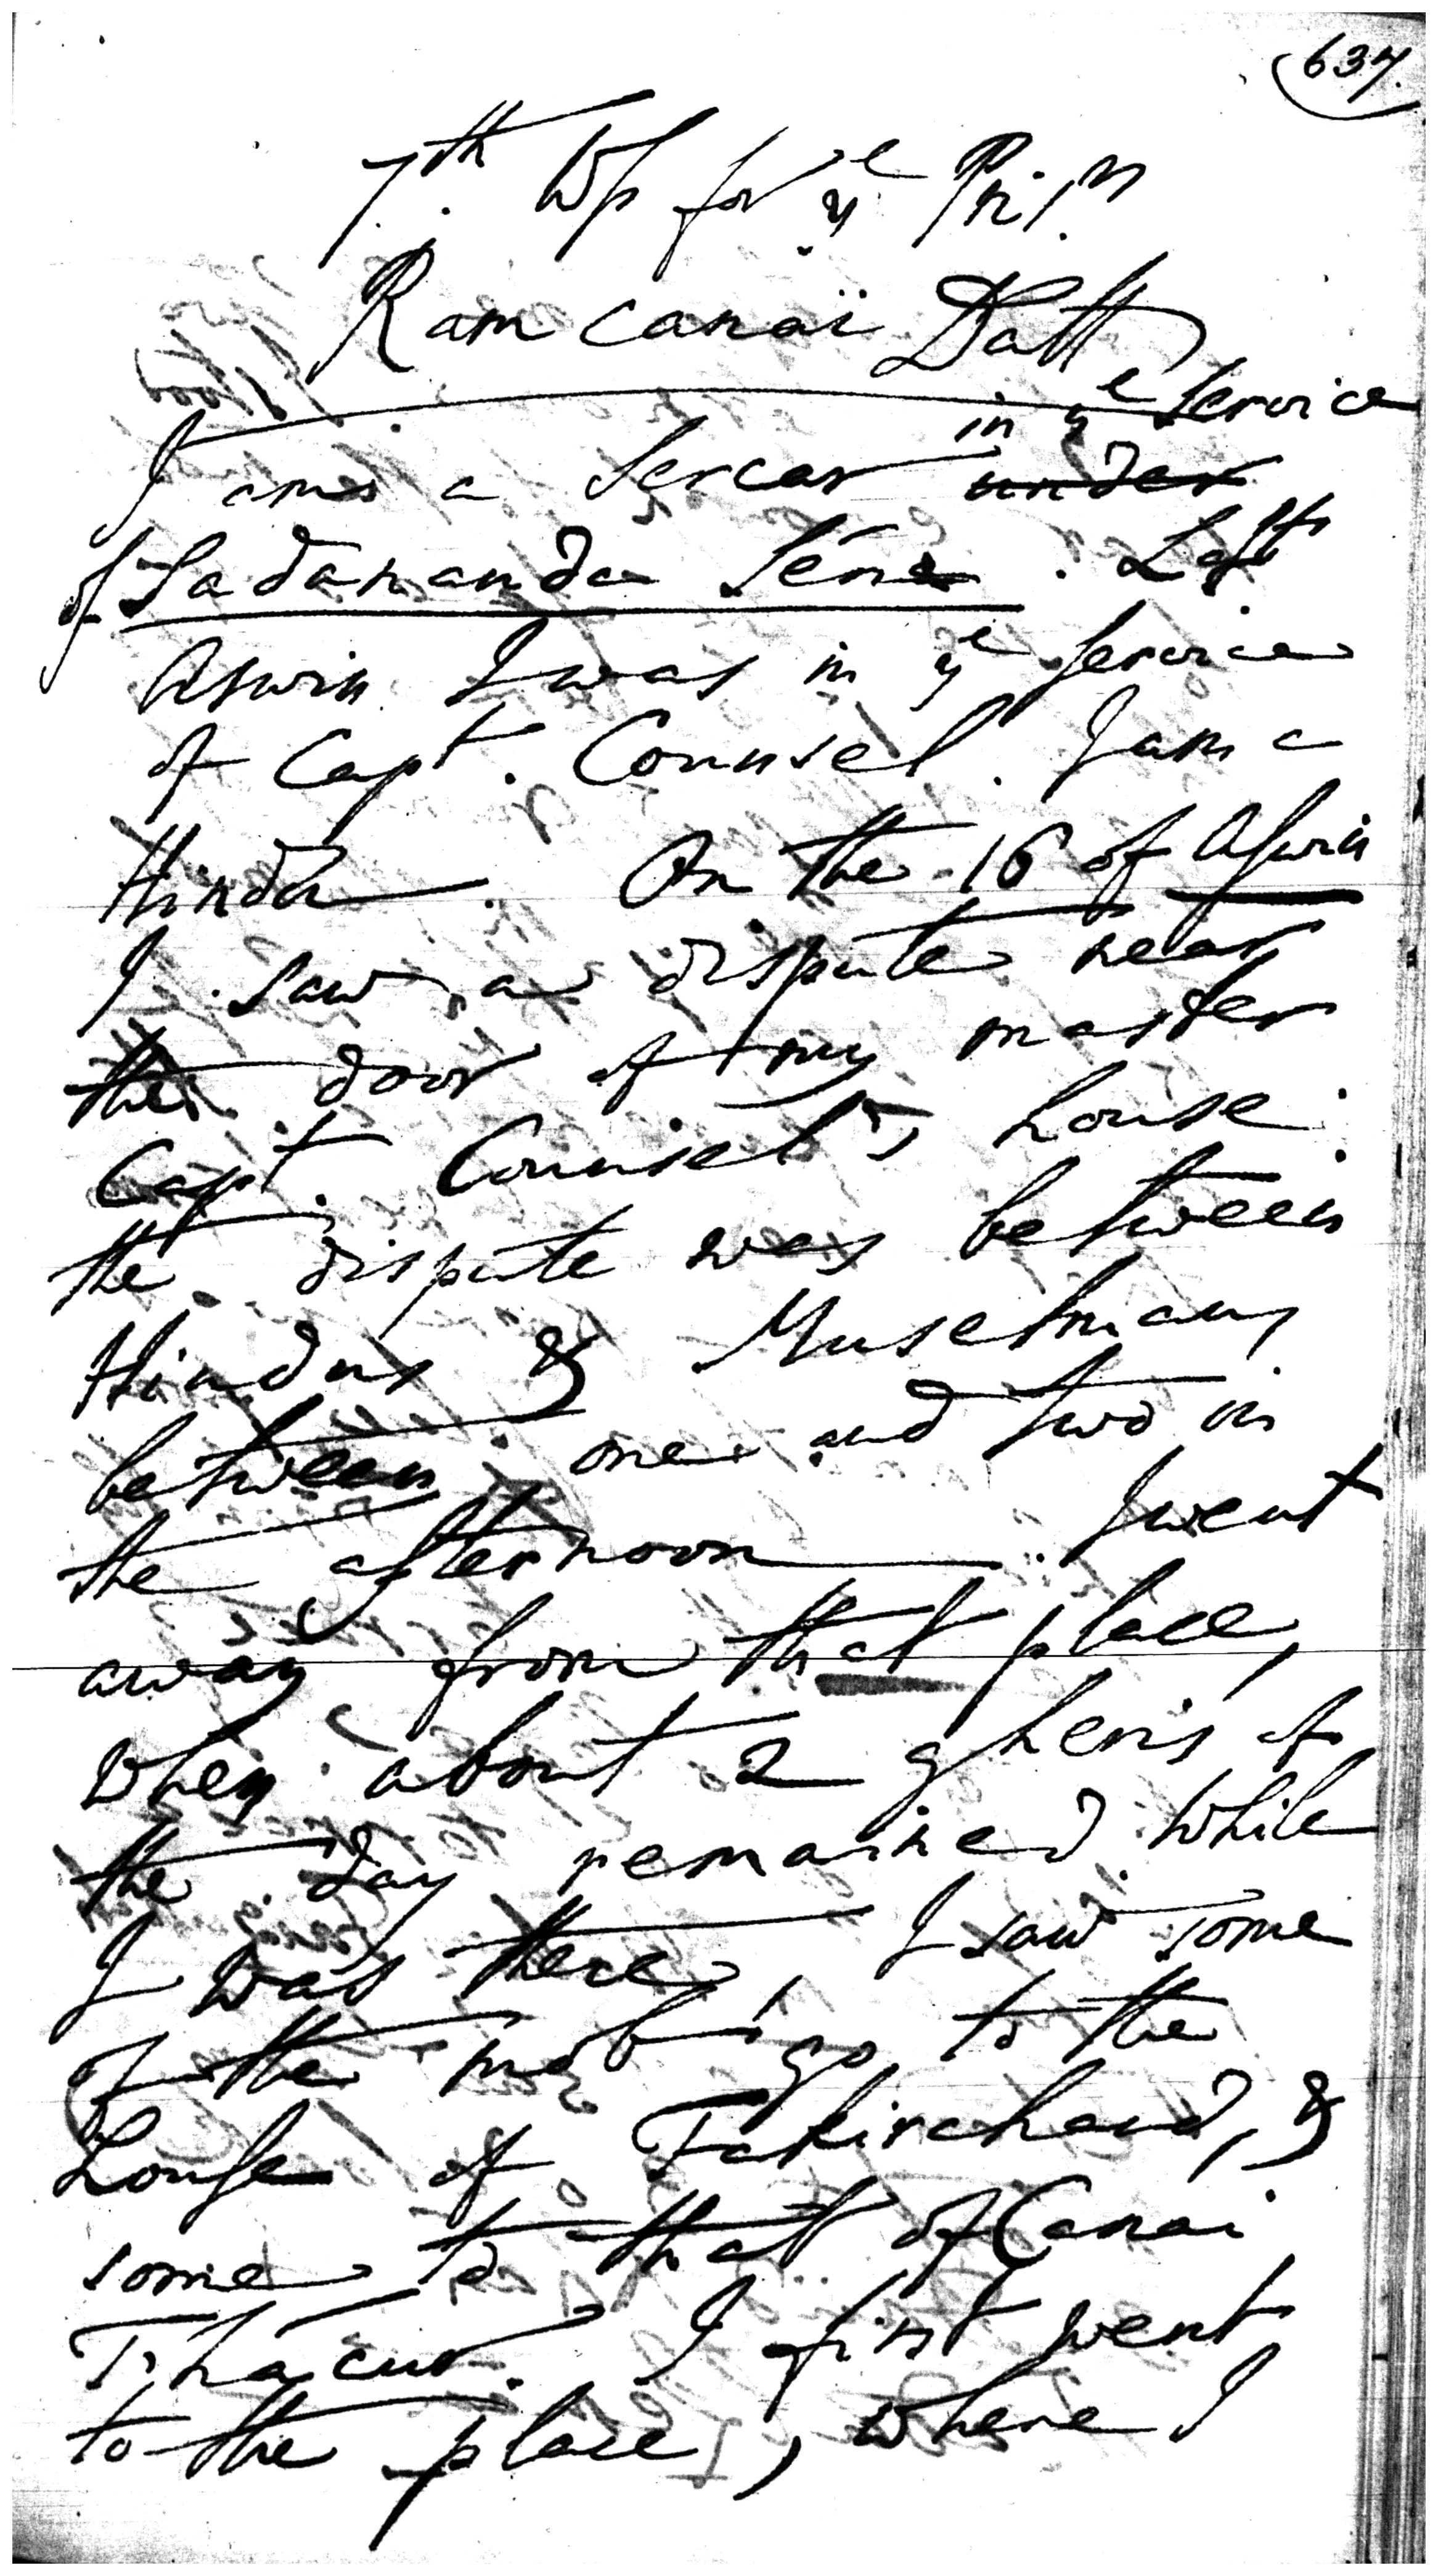 637.
7.th Ws for ye Pris.n
Ramcanaï Datt
in ye Service
I am a Sercar under
of Sadananda Sén. Last
Aswin I was in ye Service
of Capt. Counsel. I am a
Hindu. On the 16 of Aswin
I saw a dispute near
the door of my master
Capt. Counsel's house
the dispute was between
Hindus & Muselmans
between one and two in
the afternoon. I went
away from that place,
when about 2 gheris of
the day remained. While
I was there, I saw some
of the mob go to the
House of Fakirchand, &
some to that of Canai
Thacur. I first went
to the place, where I